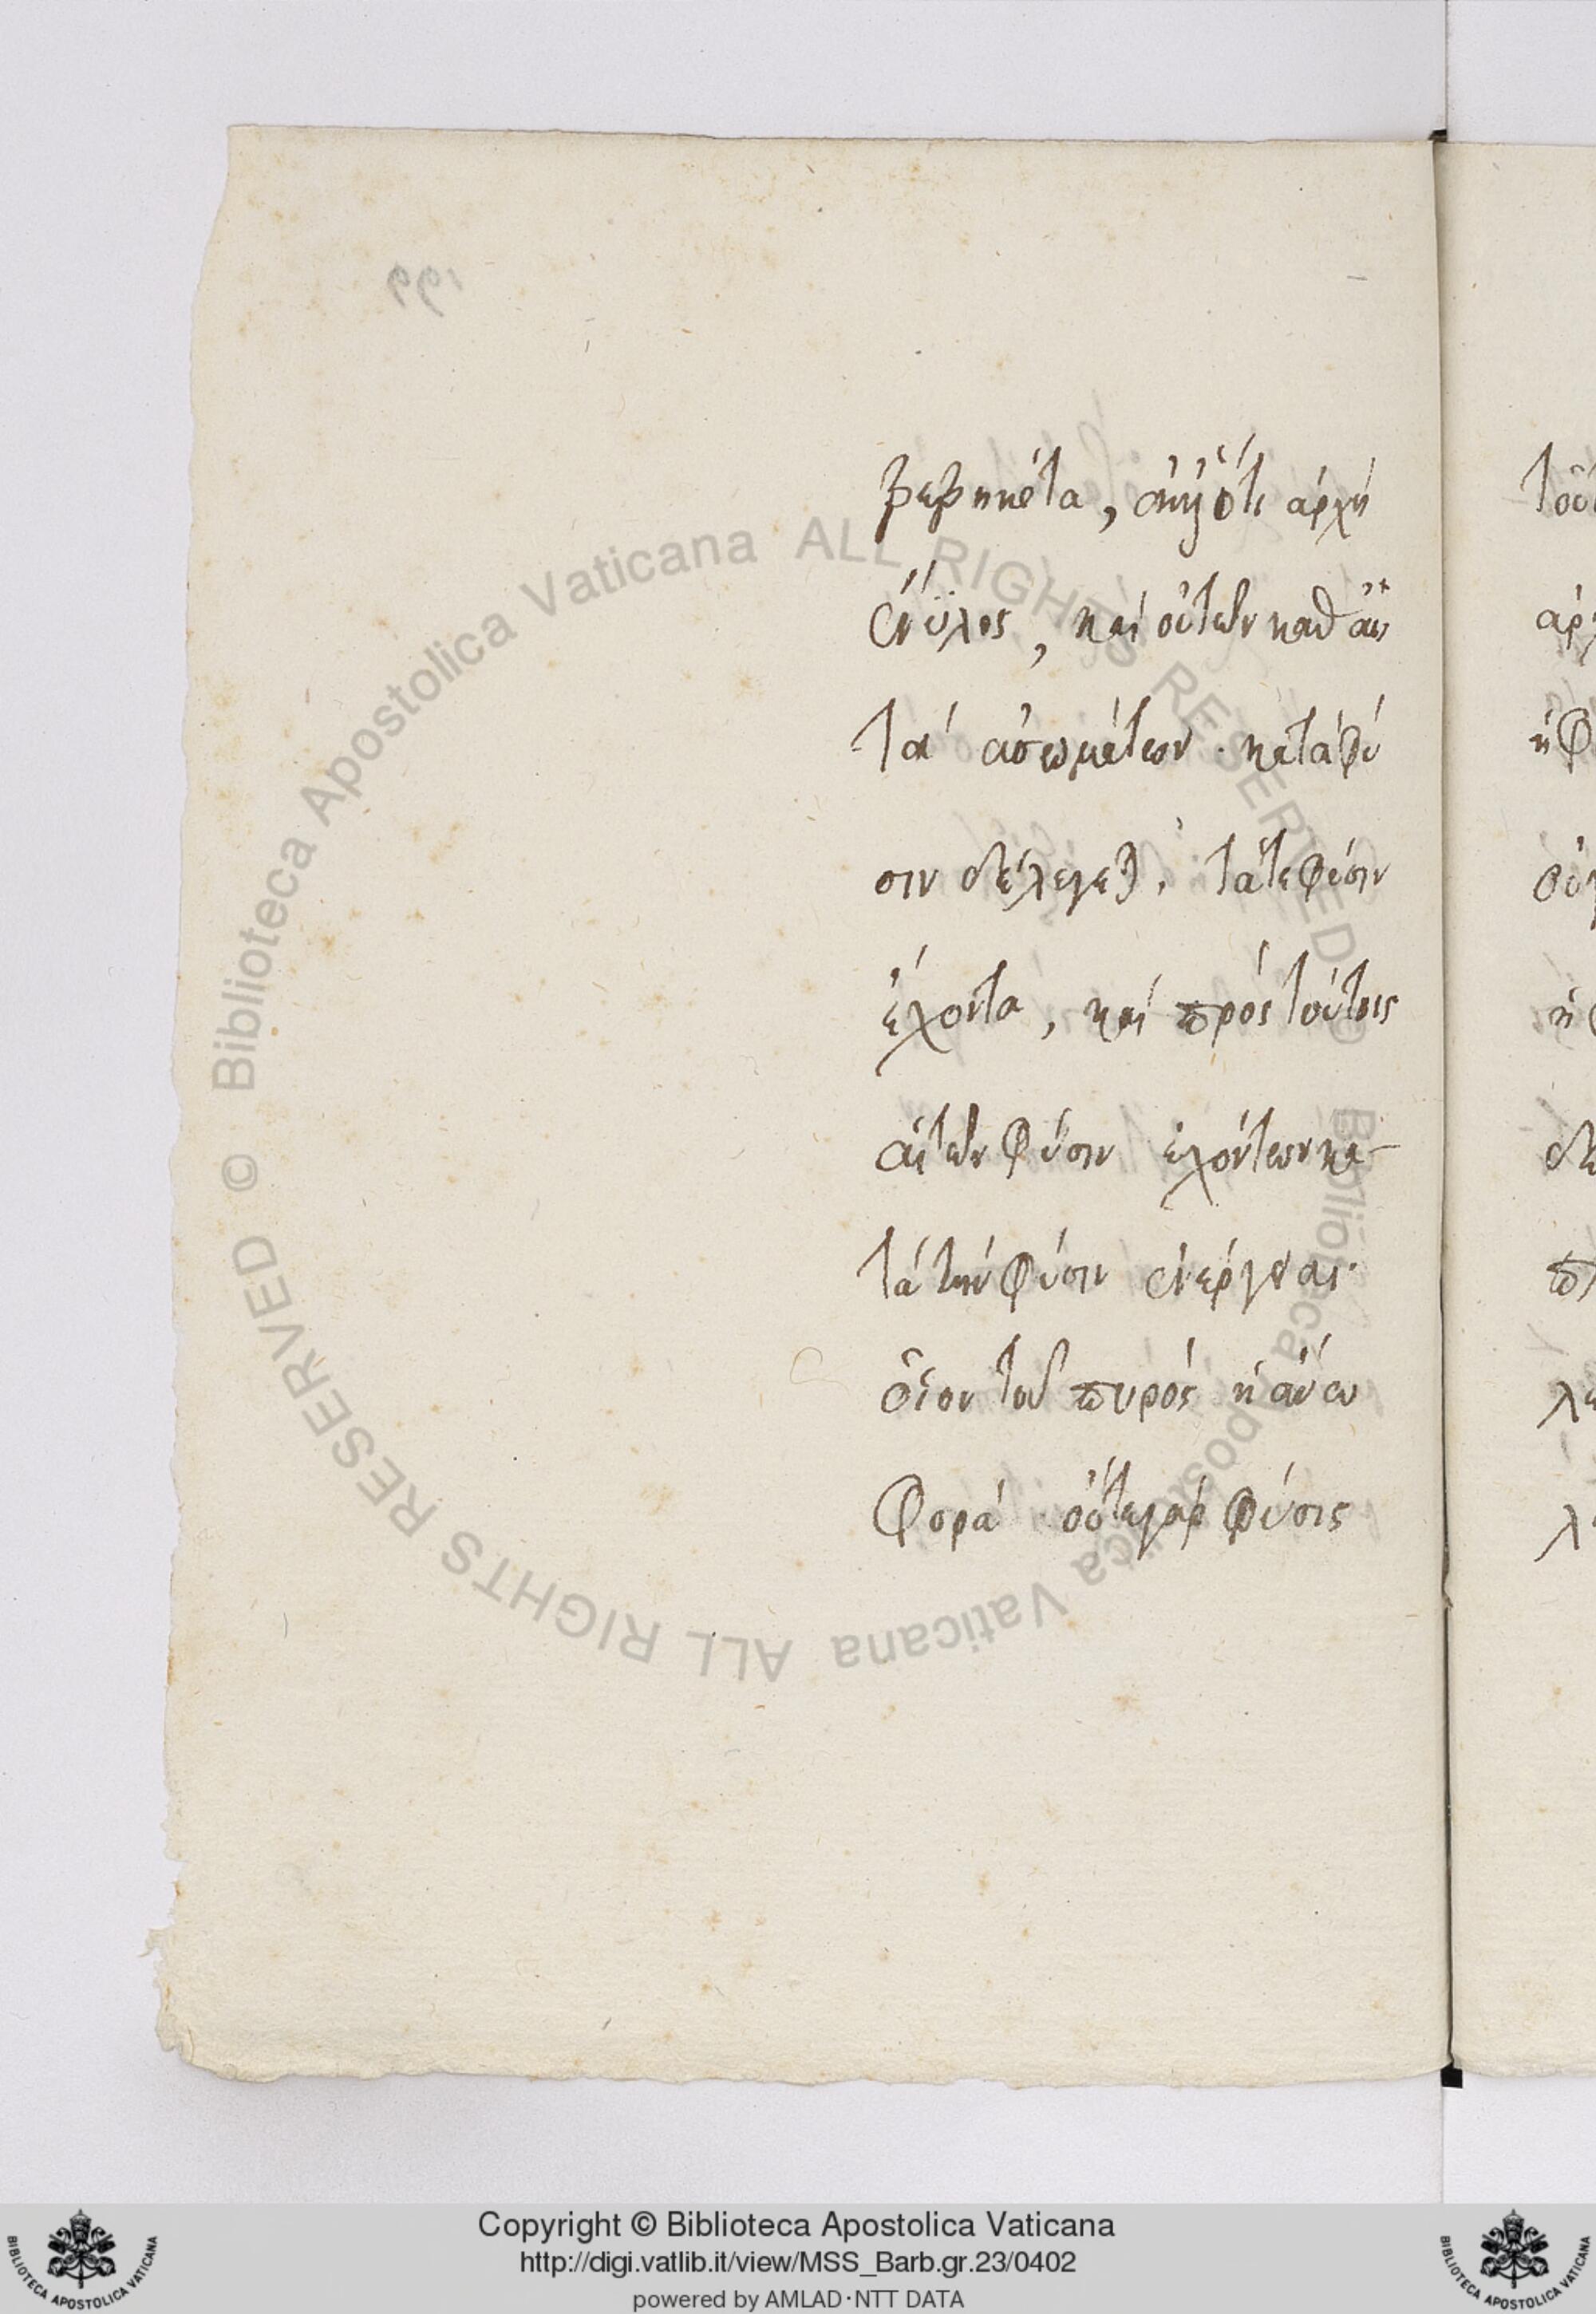 βεβηκότα, ἀλλ' ὅτι ἀρχὴ
ἔνϋλος, καὶ οὐ τῶν καθ' αὑ
τὰ ἀσωμάτων. κατὰ φύ
σιν δὲ λέγεται, τά τε φύσιν
ἔχοντα, καὶ πρὸς τούτοις
αἱ τῶν φύσιν ἐχόντων κα-
τὰ τὴν φύσιν ἐνέργειαι.
οἷον τοῦ πυρὸς ἡ ἄνω
φορά. οὔτε γὰρ φύσις
© Biblioteca Apostolica Vaticana ALL RIGHTS RESERVED © Biblioteca Apostolica Vaticana ALL RIGHTS RESERVED
Copyright © Biblioteca Apostolica Vaticana
http://digi.vatlib.it/view/MSS_Barb.gr.23/0402
powered by AMLAD·NTT DATA
BIBLIOTECA APOSTOLICA VATICANA
BIBLIOTECA APOSTOLICA VATICANA